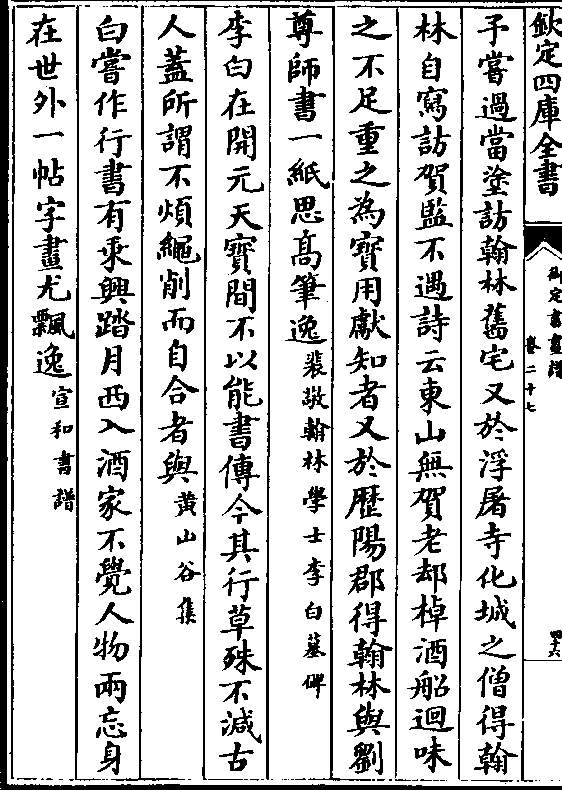 欽定四庫全書
御定書畫譜
卷二十七
四十六
予嘗過當塗訪翰林舊宅又於浮屠寺化城之僧得翰
林自寫訪賀監不遇詩云東山無賀老却棹酒船迴味
之不足重之為寳用獻知者又於歴陽郡得翰林與劉
尊師書一紙思髙筆逸裴敬翰林學士李白墓碑
李白在開元天寳間不以能書傳今其行草殊不減古
人蓋所謂不煩繩削而自合者與黄山谷集
白嘗作行書有乘興踏月西入酒家不覺人物兩忘身
在世外一帖字畫尤飄逸宣和書譜